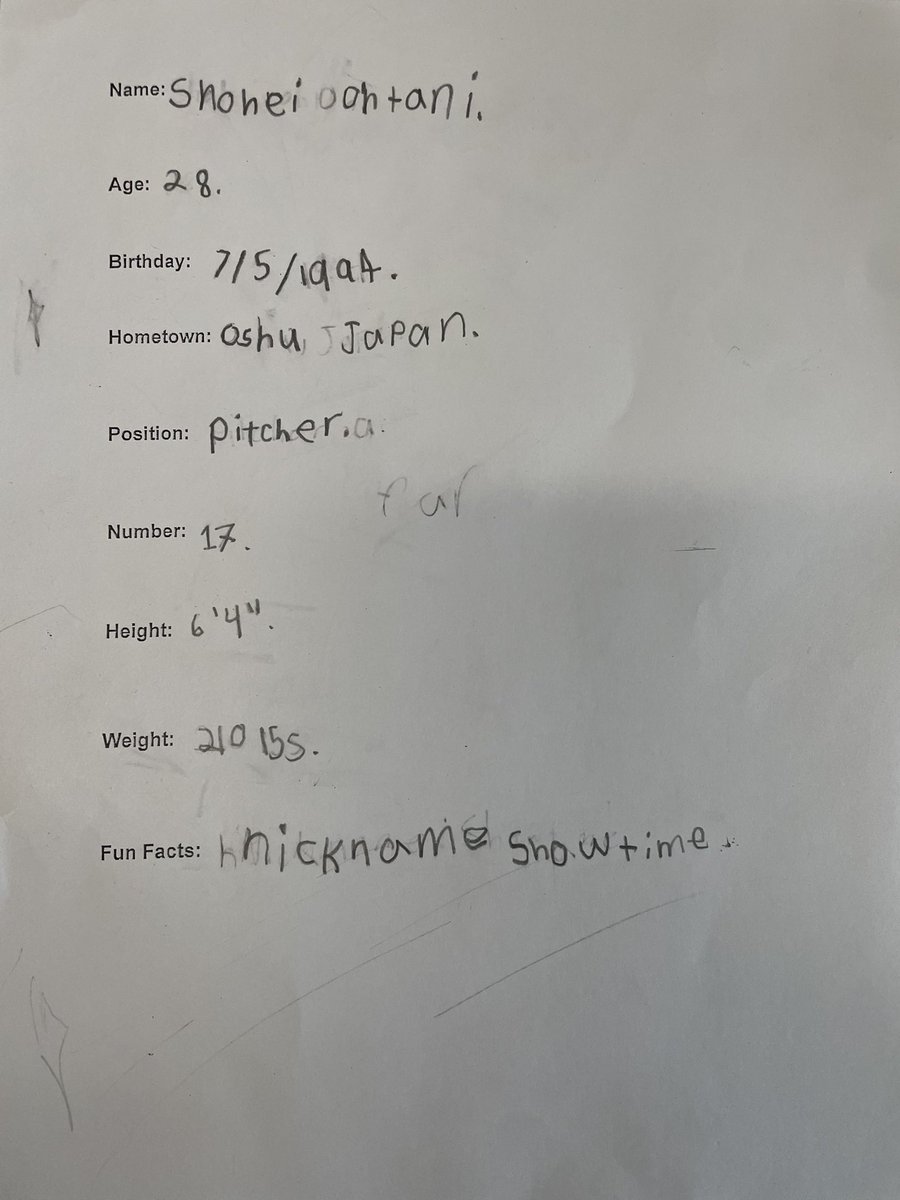 Name: Shohei oohtani.
Age: 28.
Birthday: 7/5/1994.
Hometown: Oshu, Japan.
Position: pitcher.
Number: 17.
Height: 6'4".
Weight: 210 lbs.
Fun Facts: nickname Showtime.